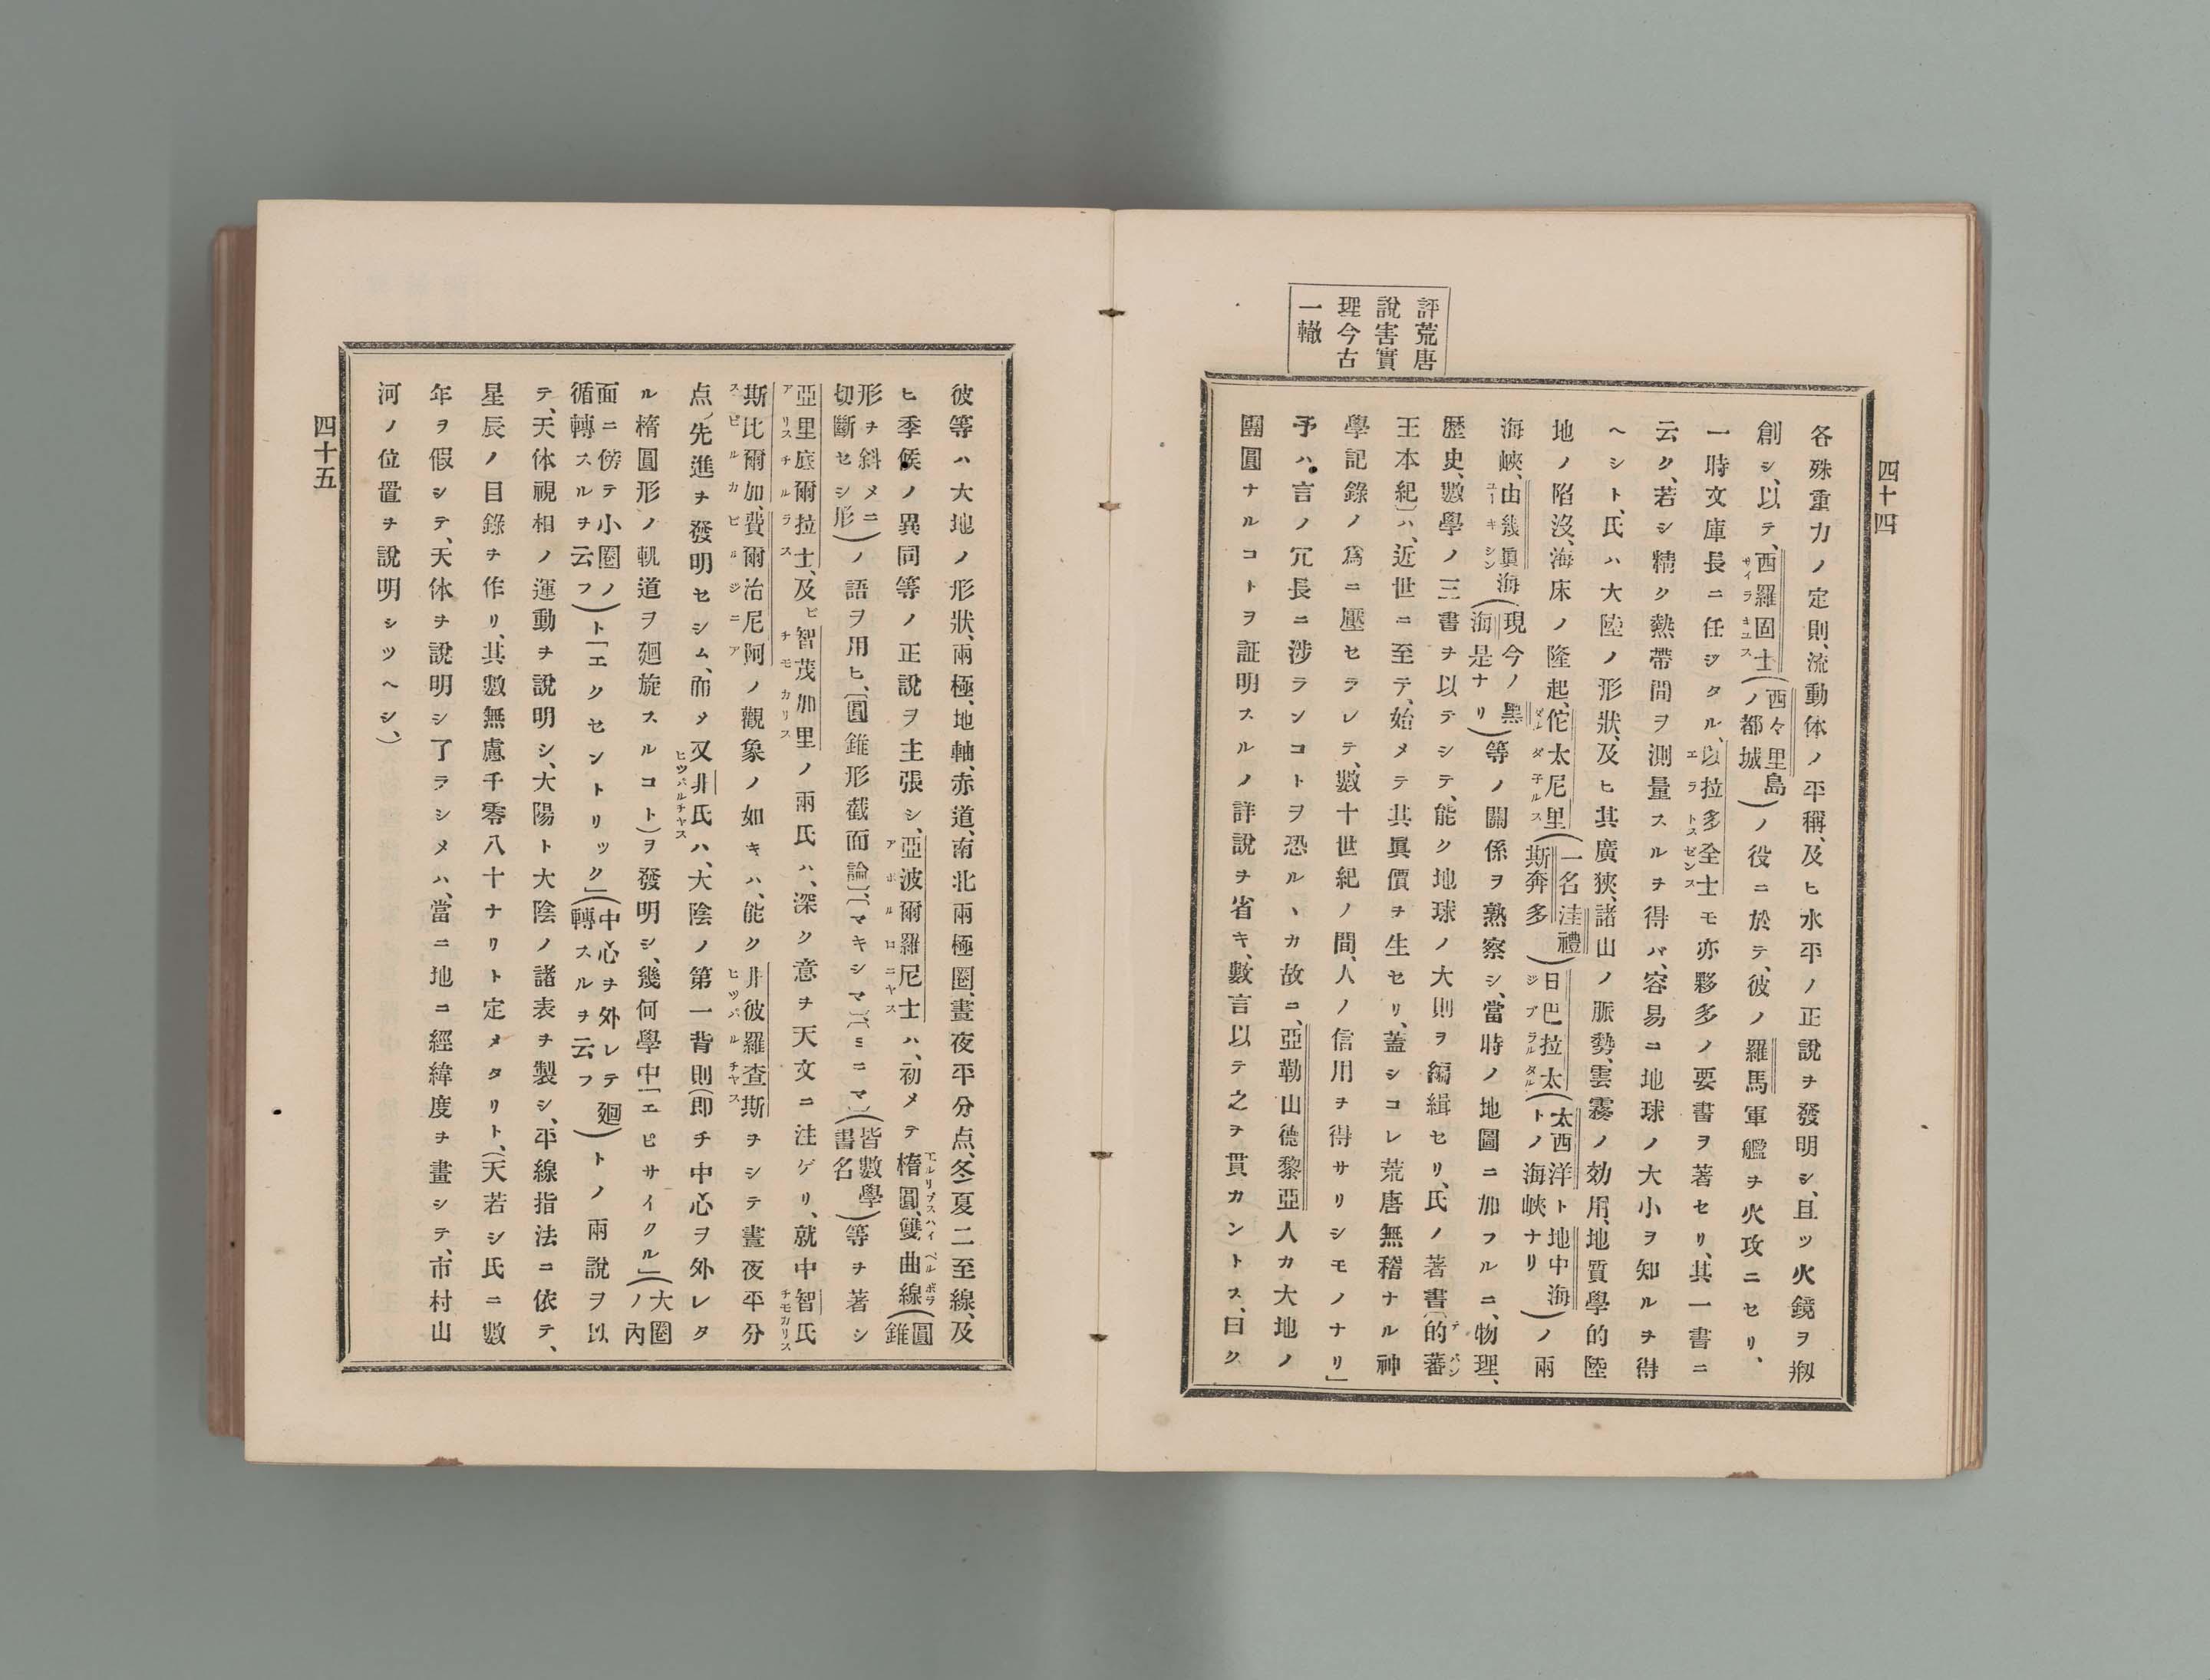 四十四
評荒唐
說害實
理今古
一轍
各殊重力ノ定則、流動体ノ平稱、及ヒ水平ノ正說ヲ發明シ、且ツ火鏡ヲ剏
創シ、以テ、西羅固士(西々里島ノ都城)ノ役ニ於テ、彼ノ羅馬軍艦ヲ火攻ニセリ、
サイラキユス
一時文庫長ニ任ジタル、以拉多全士モ亦夥多ノ要書ヲ著セリ、其一書ニ
エラトスゼンス
云ク、若シ精ク熱帶間ヲ測量スルヲ得バ、容易ニ地球ノ大小ヲ知ルヲ得
ヘシト、氏ハ大陸ノ形狀、及ヒ其廣狹、諸山ノ脈勢、雲霧ノ効用、地質學的陸
地ノ陷沒、海床ノ隆起、佗太尼里(一名洼禮斯奔多)日巴拉太(太西洋ト地中海トノ海峽ナリ)ノ兩
ダルダ子ルス
ジブラルタル
海峽、由幾眞海(現今ノ黑海是ナリ)等ノ關係ヲ熟察シ、當時ノ地圖ニ加フルニ、物理、
ユーキシン
歷史、數學ノ三書ヲ以テシテ、能ク地球ノ大則ヲ編緝セリ、氏ノ著書(的蕃
テバン
王本紀)ハ、近世ニ至テ、始メテ其眞價ヲ生セリ、蓋シコレ荒唐無稽ナル神
學記錄ノ爲ニ壓セラレテ、數十世紀ノ間、人ノ信用ヲ得サリシモノナリ」
予ハ言ノ冗長ニ涉ランコトヲ恐ル、カ故ニ、亞勒山德黎亞人カ大地ノ
團圓ナルコトヲ証明スルノ詳說ヲ省キ、數言以テ之ヲ貫カントス、曰ク
彼等ハ大地ノ形狀、兩極、地軸、赤道、南北兩極圈、晝夜平分点、冬夏二至線、及
ヒ季候ノ異同等ノ正說ヲ主張シ、亞波爾羅尼士ハ、初メテ楕圓、雙曲線(圓錐
アポルロニヤス
エルリプス
ハイペルボラ
形ヲ斜メニ切斷セシ形)ノ語ヲ用ヒ、[圓錐形截面論][マキシマ][ミニマ](皆數學書名)等ヲ著シ
亞里底爾拉士、及ヒ智茂加里ノ兩氏ハ、深ク意ヲ天文ニ注ゲリ、就中智氏
アリスチルラス
チモカリス
チモカリス
斯比爾加、費爾治尼阿ノ觀象ノ如キハ、能ク非彼羅查斯ヲシテ晝夜平分
スピルカ
ビルジニア
ヒツパルチヤス
点ノ先進ヲ發明セシム、而メ又非氏ハ、大陰ノ第一背則(即チ中心ヲ外レタ
ヒツパルチヤス
ル楕圓形ノ軌道ヲ廻旋スルコト)ヲ發明シ、幾何學中「エピサイクル」(大圈ノ內
面ニ傍テ小圈ノ循轉スルヲ云フ)ト「エクセントリック」(中心ヲ外レテ廻轉スルヲ云フ)トノ兩說ヲ以
テ、天体視相ノ運動ヲ說明シ、大陽ト大陰ノ諸表ヲ製シ、平線指法ニ依テ、
星辰ノ目錄ヲ作リ、其數無慮千零八十ナリト定メタリト、(天若シ氏ニ數
年ヲ假シテ、天体ヲ說明シ了ラシメハ、當ニ地ニ經緯度ヲ畫シテ、市村山
河ノ位置ヲ說明シツヘシ、)
四十五